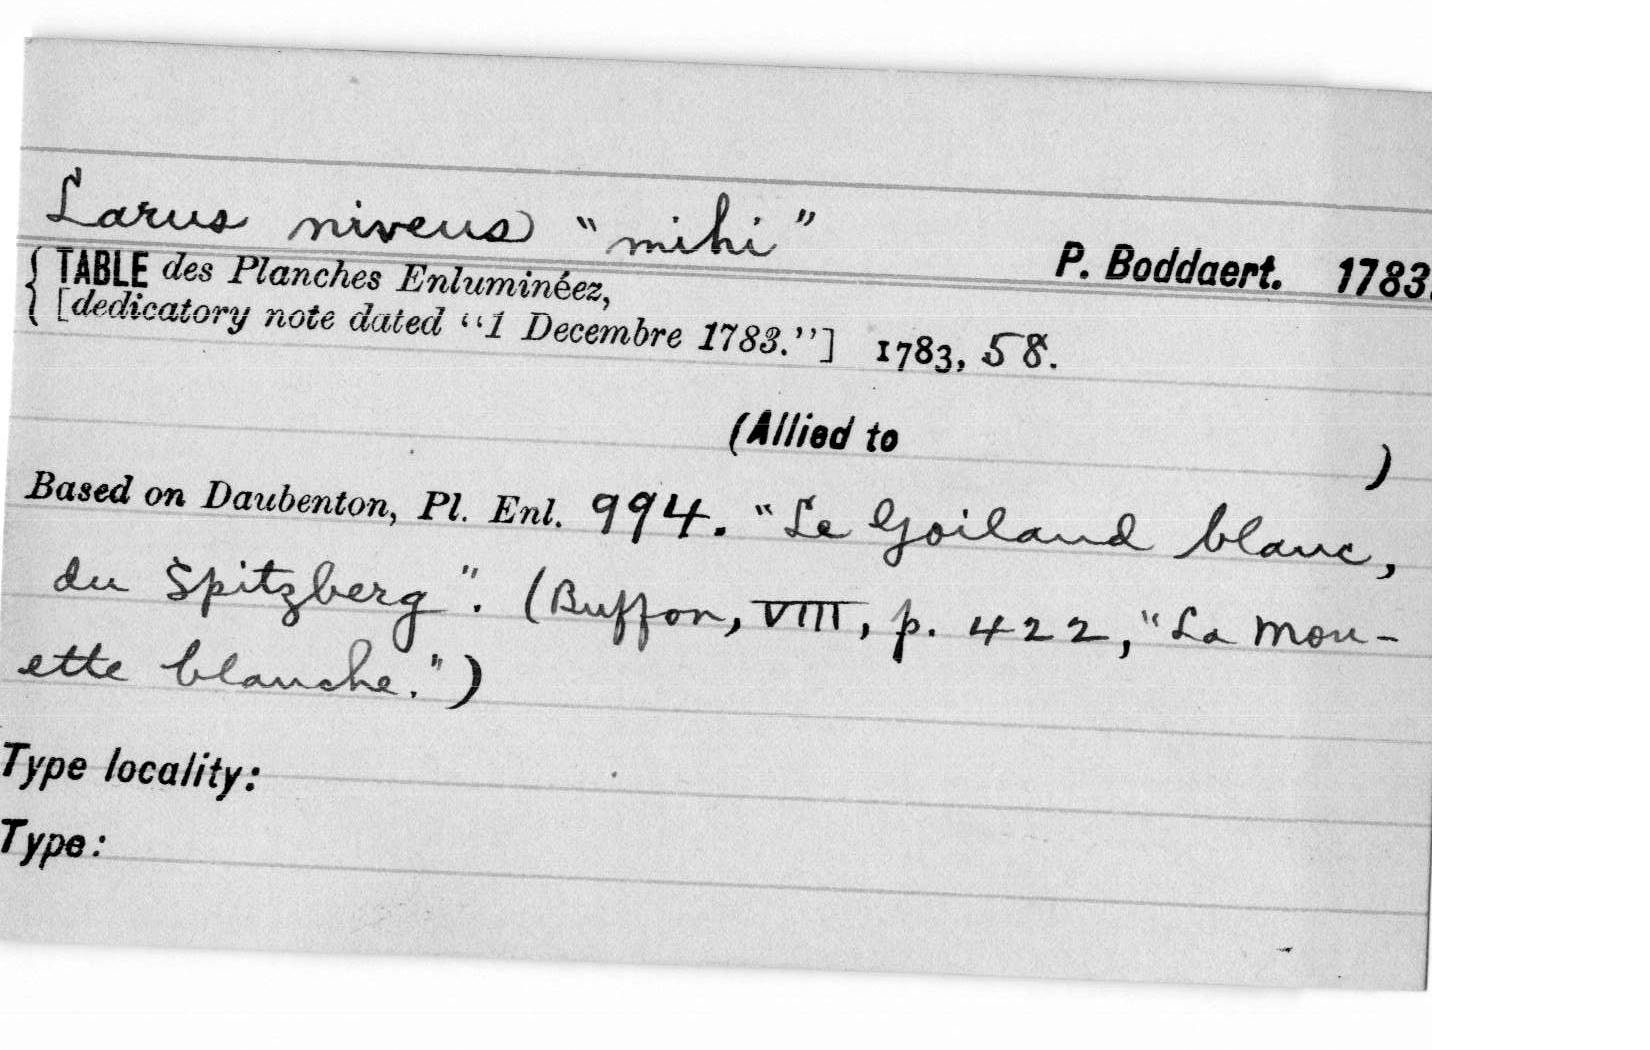 Larus niveus "mihi"
P. Boddaert. 1783.
TABLE des Planches Enluminéez,
[dedicatory note dated "1 Decembre 1783."] 1783, 58.
(Allied to )
Based on Daubenton, Pl. Enl. 994. "Le Goiland blanc,
du Spitzberg". (Buffon, VIII, p. 422, "La Mou-
ette blanche.")
Type locality:
Type: